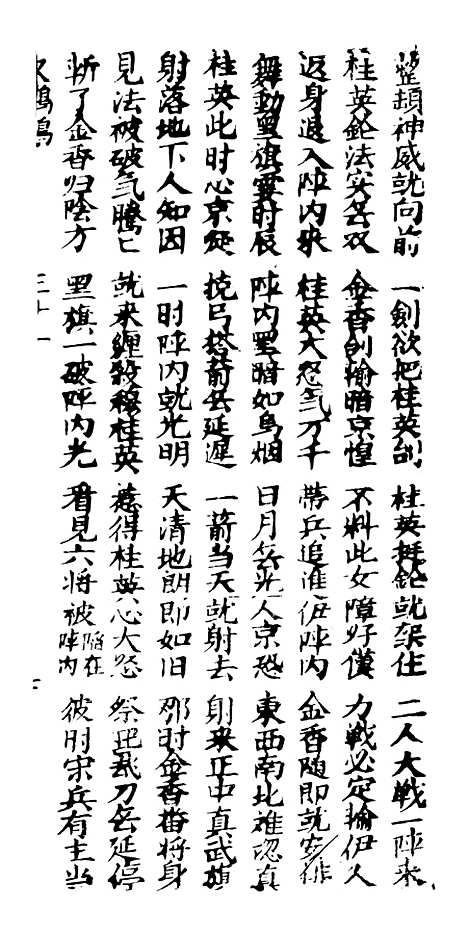 整頓神威就向前 一劍欲把桂英刣 桂英挺鎗就架住 二人大戰一陣來
桂英鎗法实無双 金香創輸暗京惶 不料此女障好漢 力戰必定輸伊人
返身退入陣内來 桂英大怒氣万千 帶兵追進伊陣内 金香随即就安俳
舞動黑旗霎时辰 陣内黑暗如烏烟 日月無光人京恐 東西南北难認真
桂英此时心京疑 挽弓搭箭無延遲 一箭当天就射去 射來正中真武旗
射落地下人知因 一时陣内就光明 天清地朗即如旧 那时金香番将身
見法被破氣騰匕 就来纏殺穆桂英 惹得桂英心大怒 祭起飛刀無延停
斬了金香归陰方 黑旗一破陣内光 看見六将被陷在陣内 彼时宋兵有主当
三十一